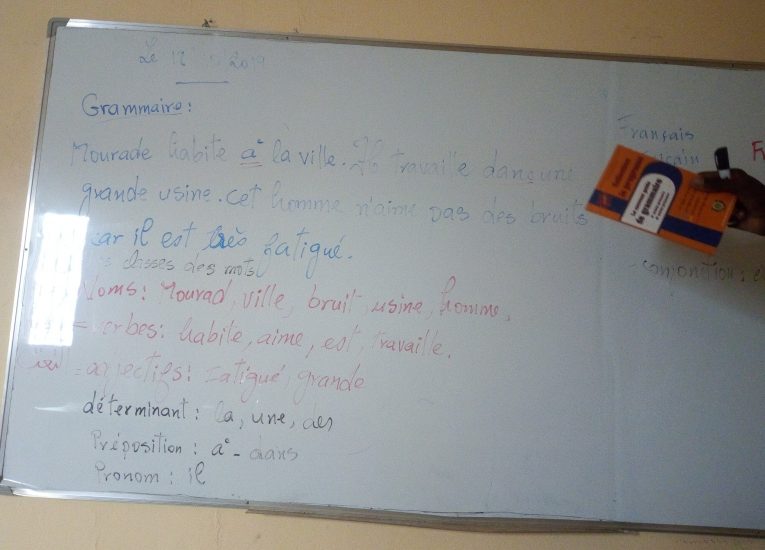 Le 12 2019
Grammaire:
Mourade habite à la ville. Il travaille dans une
grande usine. cet homme n'aime pas des bruits
car il est très fatigué.
classes des mots
Noms: Mourad, ville, bruit, usine, homme.
- verbes: habite, aime, est, travaille.
- adjectifs: Fatigué, grande
déterminant: la, une, des
Préposition: à - dans
Pronom: il
Français
la grammaire
conjonction: